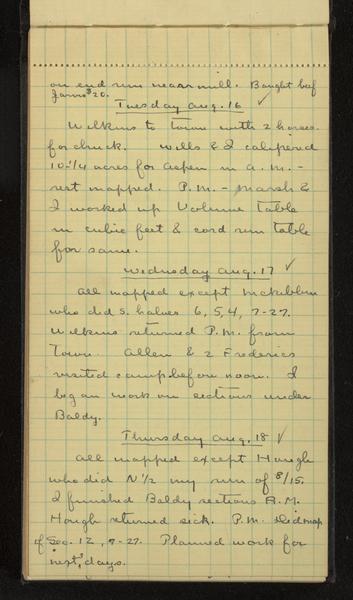 on end run near mill. Bought beef
Jarvis $20.
Tuesday Aug. 16 ✓
Wilkins to town with 2 horses
for chuck. Wells & I calipered
10-1/4 acres for Aspen in A.M. -
rest mapped. P.M. - Marsh &
I worked up Volume Table
in cubic feet & cord run table
for same.
Wednesday Aug. 17 ✓
All mapped except McKibben
who did S. halves 6, 5, 4, 7-27.
Wilkins returned P.M. from
Town. Allen & 2 Fredericks
visited camp before noon. I
began work on sections under
Baldy.
Thursday Aug. 18 ✓
All mapped except Hough
who did N 1/2 my run of 8/15.
I finished Baldy sections A.M.
Hough returned sick. P.M. Did map
of Sec. 12, 7-27. Planned work for
next 3 days.